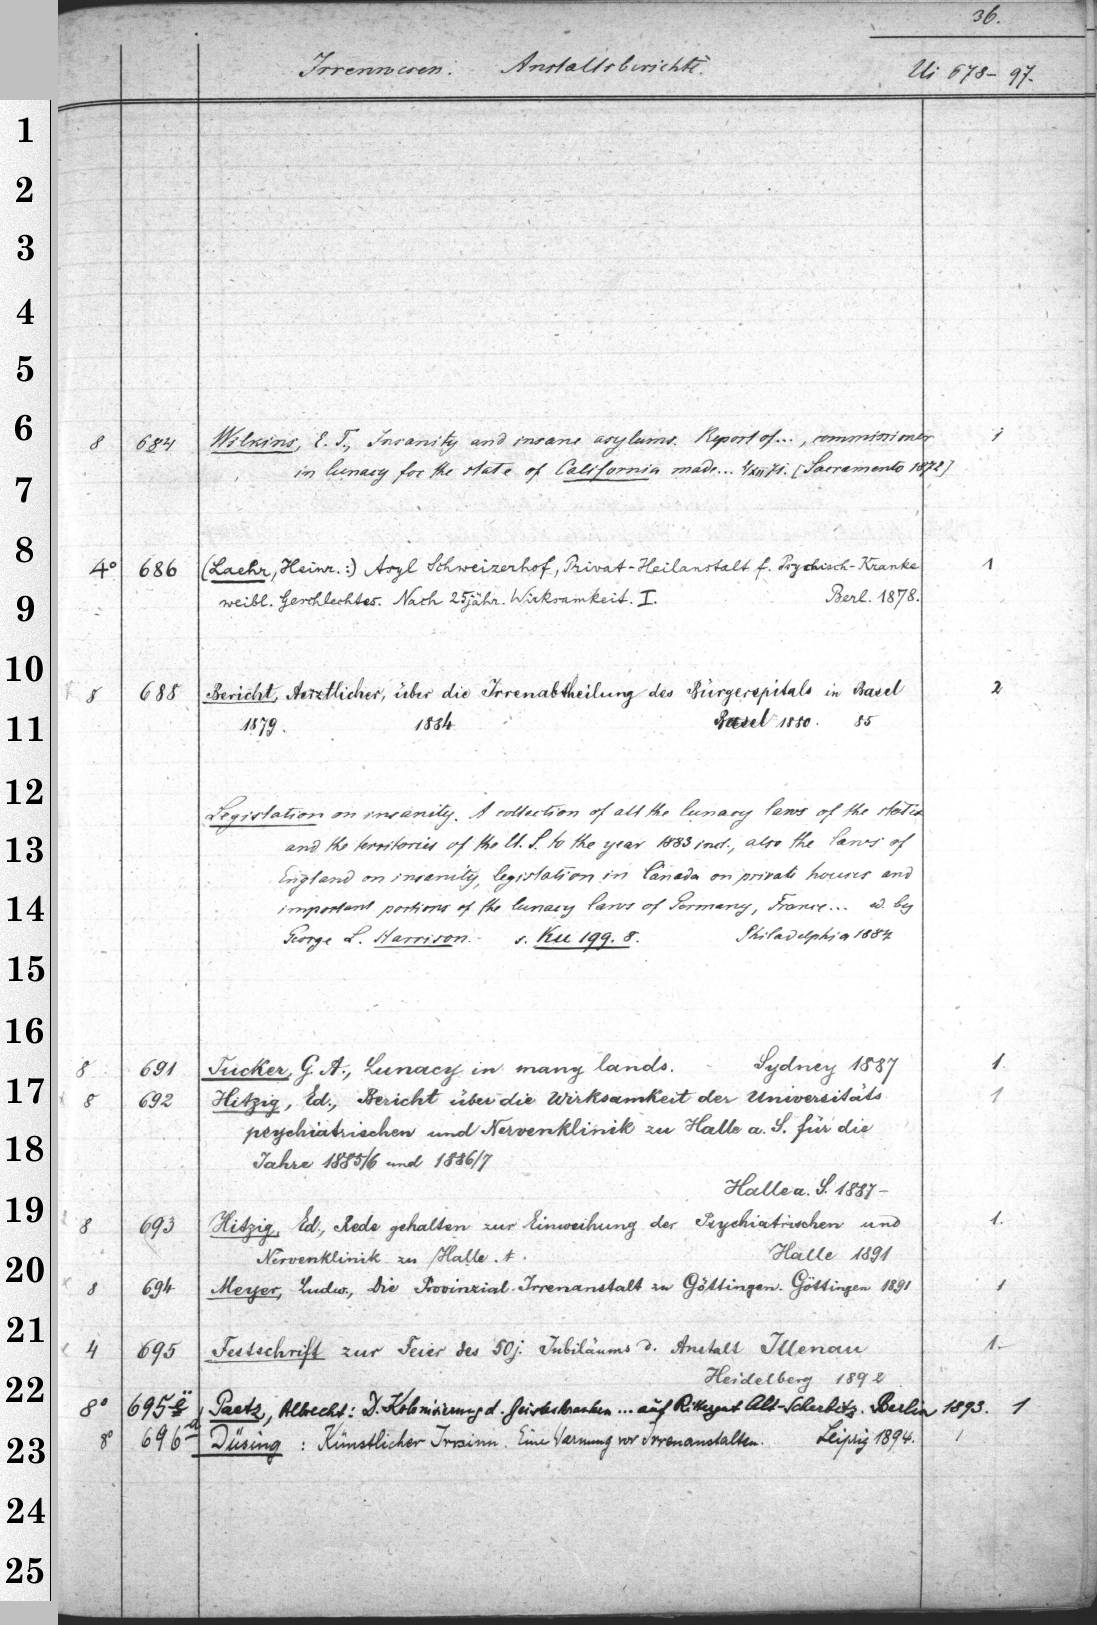 36.
Irrenwesen. Anstaltsberichte. Ui 678-97.
1
2
3
4
5
6
8 684 Wilkins, E. T., Insanity and insane asylums. Report of..., commissioner 1
in lunacy for the state of California made... 1/XII 71. [Sacramento 1872]
7
8
4° 686 (Laehr, Heinr.:) Asyl Schweizerhof, Privat-Heilanstalt f. Psychisch-Kranke 1
weibl. Geschlechtes. Nach 25jähr. Wirksamkeit. I. Berl. 1878.
9
10
8 688 Bericht, Aerztlicher, über die Irrenabtheilung des Bürgerspitals in Basel 2
11
1879. 1884 Basel 1880. 85
12
Legislation on insanity. A collection of all the lunacy laws of the states
13
and the territories of the U. S. to the year 1883 incl., also the laws of
England on insanity, legislation in Canada on private houses and
14
important portions of the lunacy laws of Germany, France... ed. by
George L. Harrison. s. Ku 199. 8. Philadelphia 1884
15
16
8 691 Tucker, G. A., Lunacy in many lands. Sydney 1887 1
17
8 692 Hitzig, Ed., Bericht über die Wirksamkeit der Universitäts 1
psychiatrischen und Nervenklinik zu Halle a. S. für die
18
Jahre 1885/6 und 1886/7
Halle a. S. 1887-
19
8 693 Hitzig, Ed., Rede gehalten zur Einweihung der Psychiatrischen und 1.
Nervenklinik zu Halle. Halle 1891
20
8 694 Meyer, Ludw., Die Provinzial-Irrenanstalt zu Göttingen. Göttingen 1891 1
21
4 695 Festschrift zur Feier des 50j. Jubiläums d. Anstalt Illenau 1.
Heidelberg 1892
22
8° 695 Paetz, Albrecht: D. Kolonisierung d. Geisteskranken... auf Rittergut Alt-Scherbitz. Berlin 1893. 1
23
8° 696 Düsing : Künstlicher Irrsinn. Eine Warnung vor Irrenanstalten. Leipzig 1894. 1
24
25